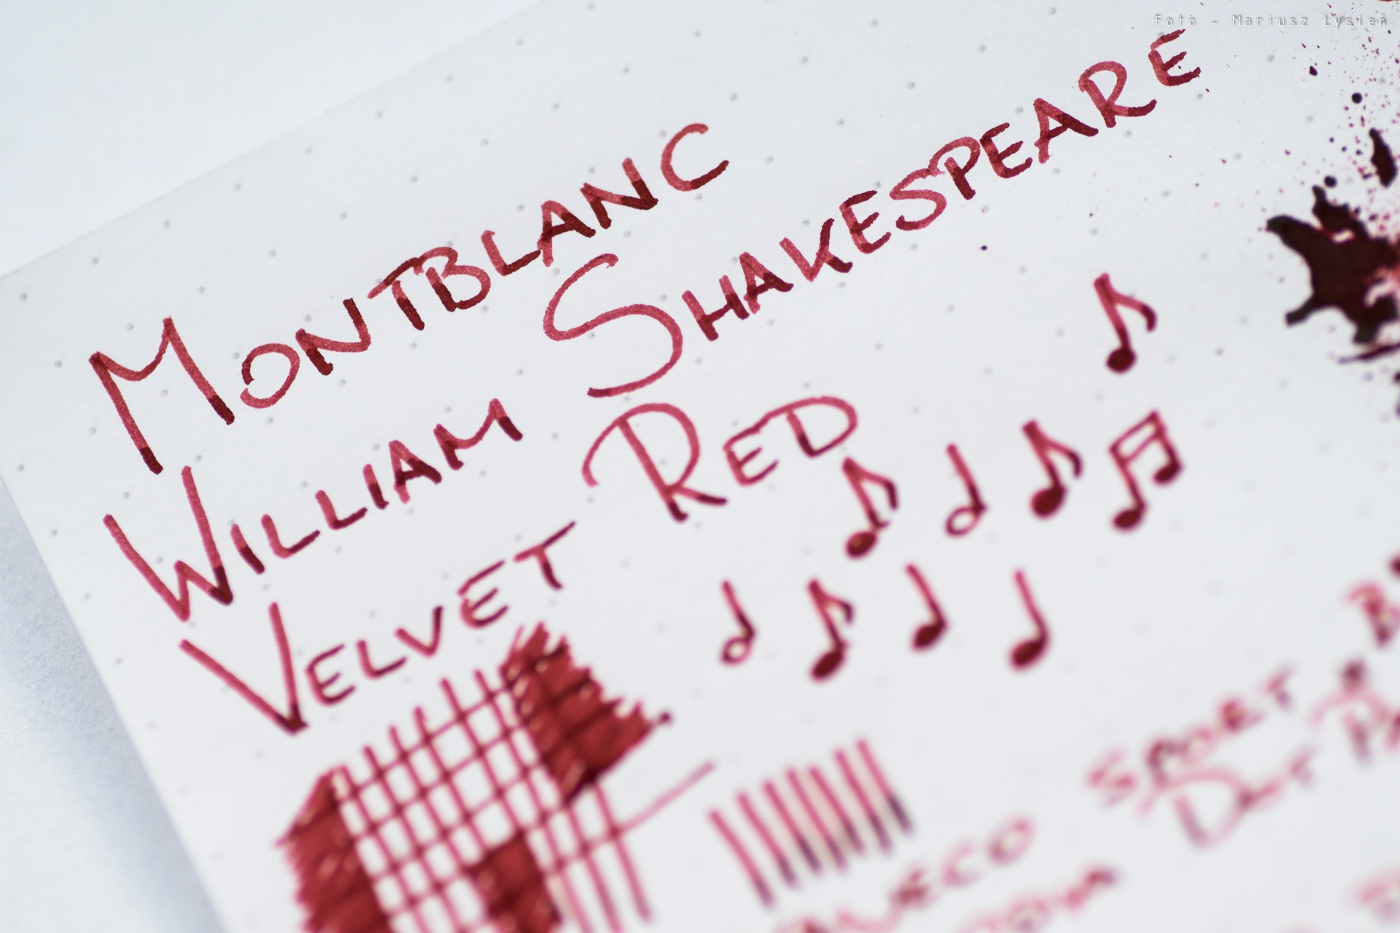 Foto - Mariusz Łysień
MONTBLANC
WILLIAM SHAKESPEARE
VELVET RED
SPORT
DOT